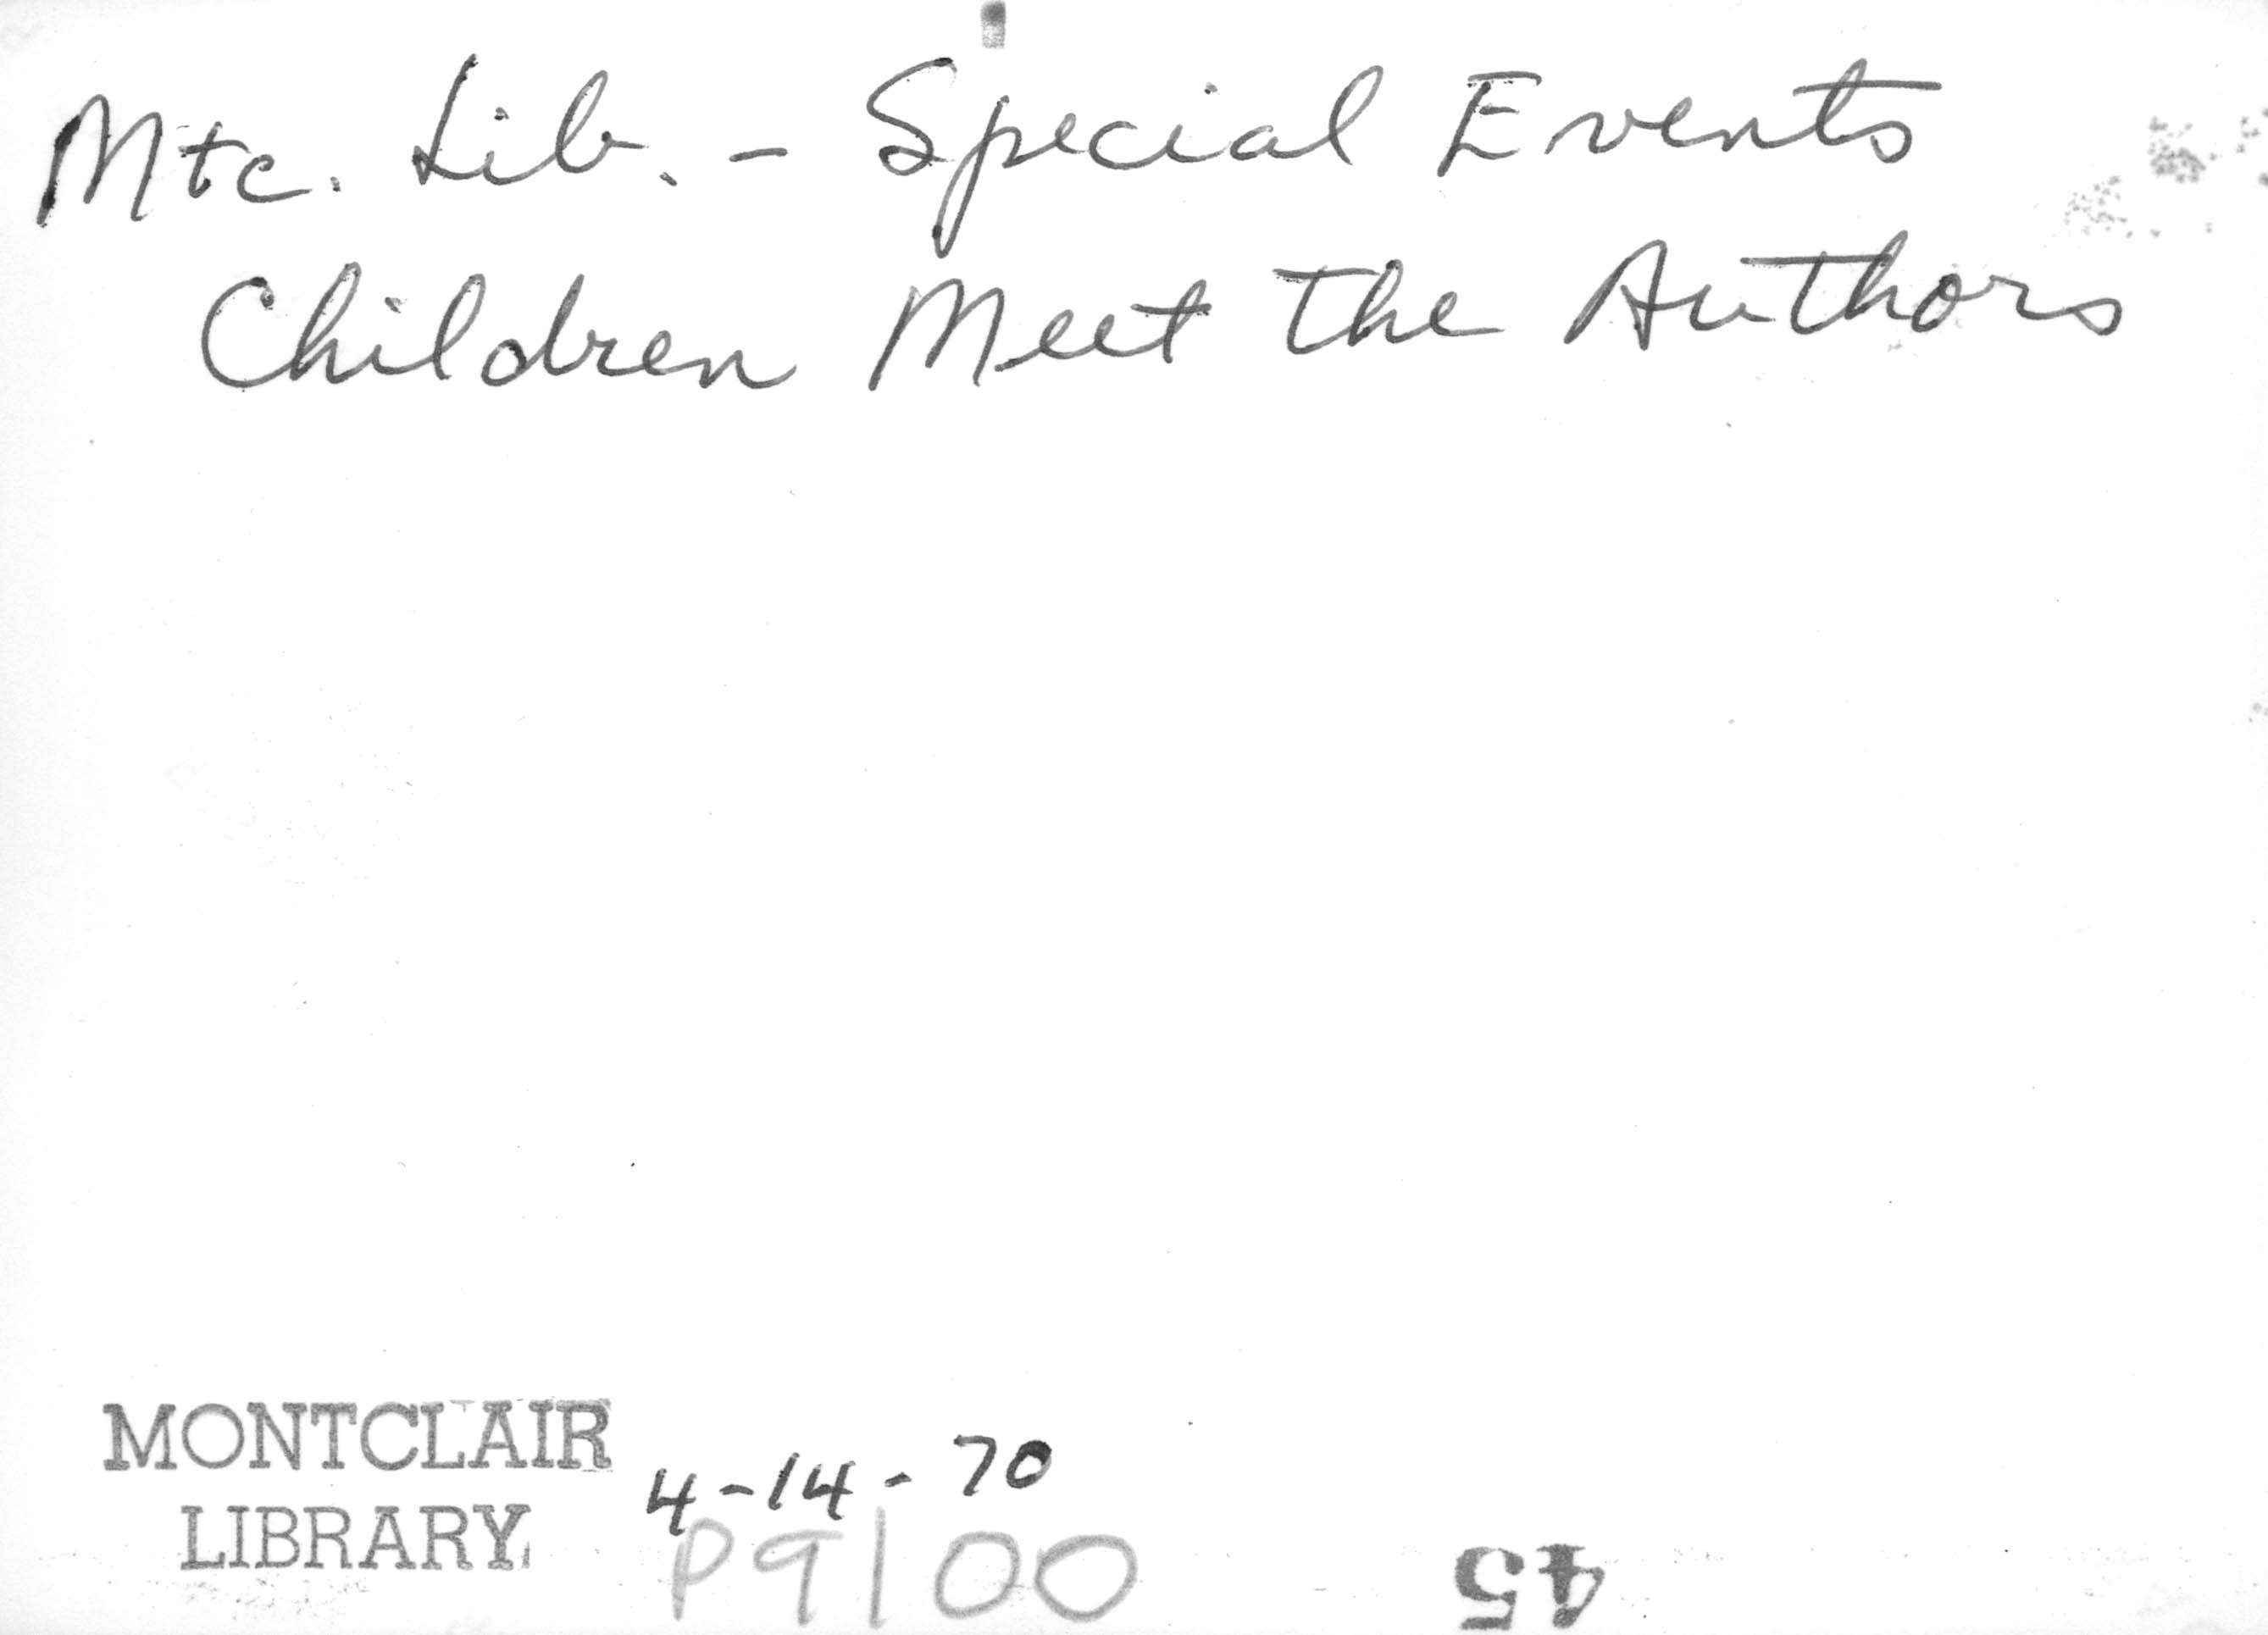 Mtc. Lib. - Special Events
Children Meet the Authors
MONTCLAIR
LIBRARY
4-14-70
P9100
45